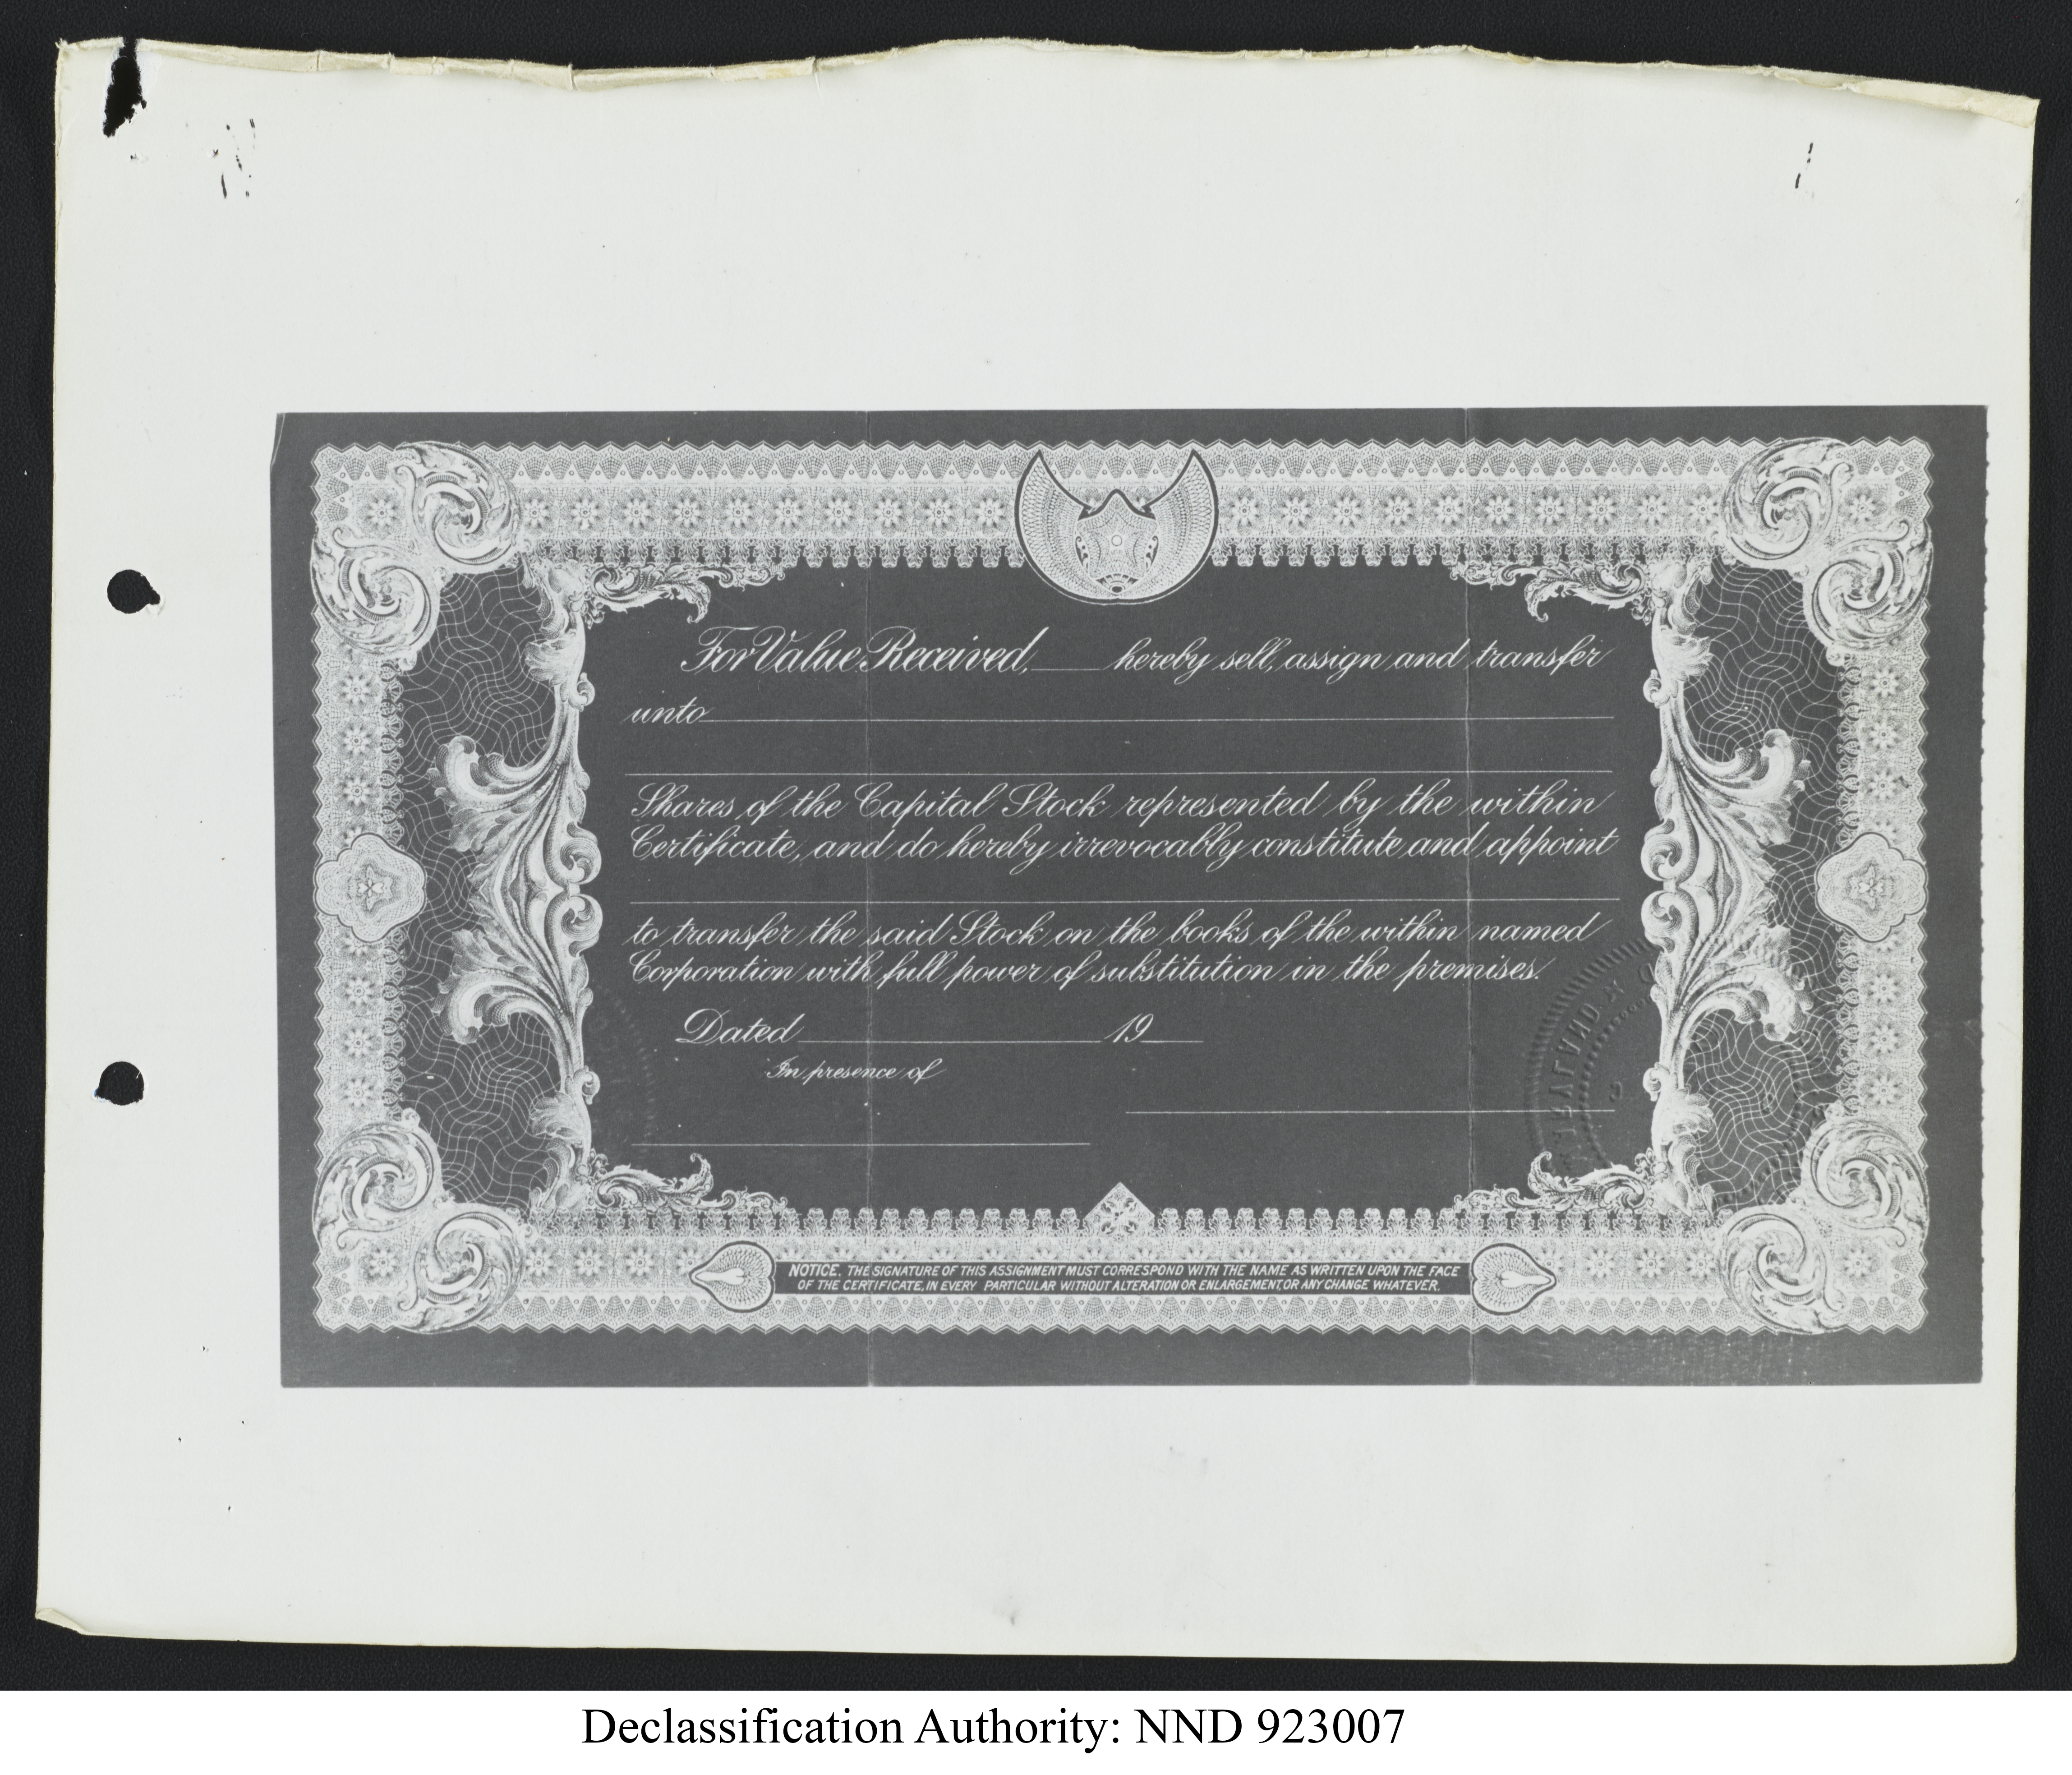 For Value Received, ____ hereby sell, assign and transfer
unto
Shares of the Capital Stock represented by the within
Certificate, and do hereby irrevocably constitute and appoint
to transfer the said Stock on the books of the within named
Corporation with full power of substitution in the premises.
Dated ____ 19__
In presence of
NOTICE. THE SIGNATURE OF THIS ASSIGNMENT MUST CORRESPOND WITH THE NAME AS WRITTEN UPON THE FACE
OF THE CERTIFICATE, IN EVERY PARTICULAR WITHOUT ALTERATION OR ENLARGEMENT, OR ANY CHANGE WHATEVER.
Declassification Authority: NND 923007